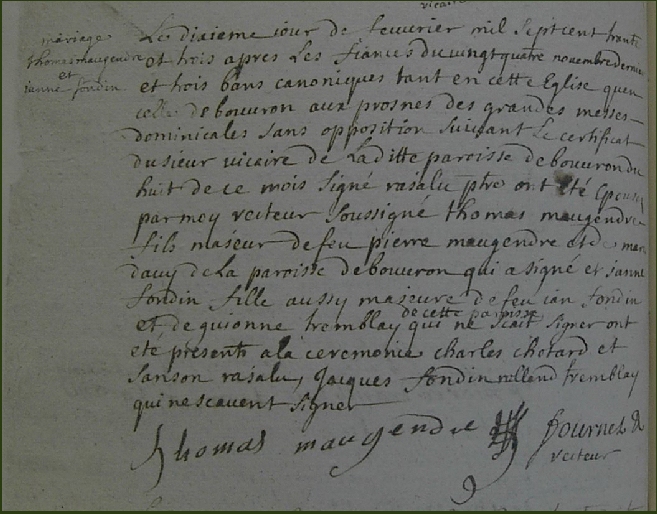 vicaire
mariage
thomas maugendre
et
ianne fondin
Les dixieme iour de feuvrier mil sept cent trante
et trois apres Les fiances du vingt quatre novembre dernier
et trois bans canoniques tant en cette Eglise quen
celle de bouvron aux prosnes des grandes messes
dominicales sans opposition suivant Le certificat
du sieur vicaire de Laditte paroisse de bouvron du
huit de ce mois signé rasalu ptre ont eté Epousez
par moy recteur soussigné thomas maugendre
fils maseur de feu pierre maugendre et de
davy de la paroisse de bouvron qui a signé et ianne
fondin fille aussy maseure de feu ian fondin
et de guionne tremblay de cette paroisse qui ne scait signer ont
eté presents a la ceremonie charles chotard et
sanson rasalu, Jacques fondin tremblay
qui ne scavent signer
thomas maugendre
recteur